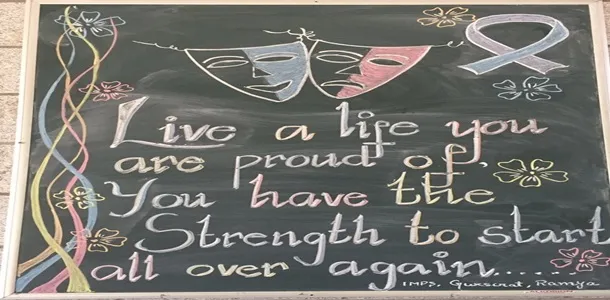 Live a life you
are proud of,
You have the
Strength to start
all over again......
IMPS, Gursirat, Ramya